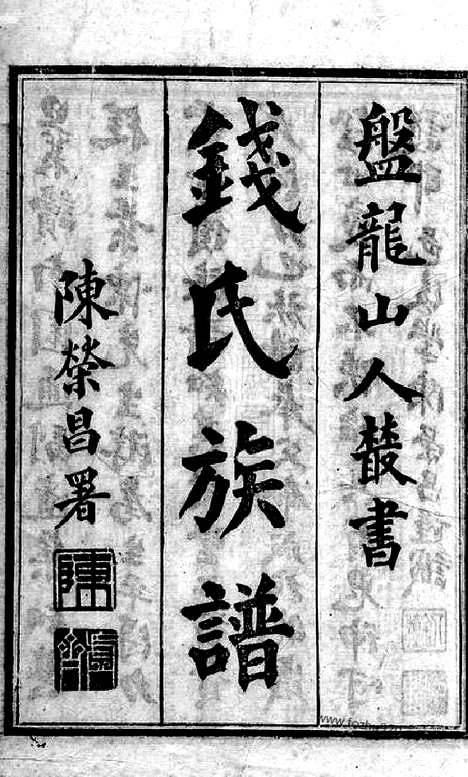 盤龍山人叢書
錢氏族譜
陳榮昌署